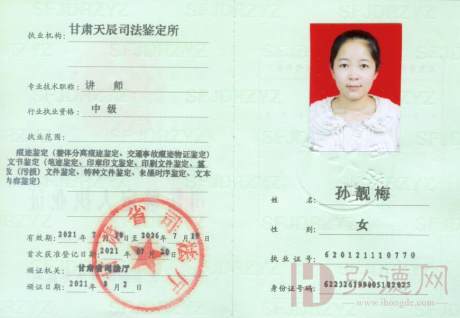 执业机构： 甘肃天辰司法鉴定所
专业技术职称： 讲 师
行业执业资格： 中 级
执业范围：
痕迹鉴定（整体分离痕迹鉴定、交通事故痕迹物证鉴定）
文书鉴定（笔迹鉴定、印章印文鉴定、印刷文件鉴定、篡
改（污损）文件鉴定、特种文件鉴定、朱墨时序鉴定、文本
内容鉴定）
有效期：
首次获准登记日期：2021年07月20日
颁证机关： 甘肃省司法厅
颁证日期： 2021年8月2日
甘肃省司法厅
姓 名： 孙靓梅
性 别： 女
执业证号： 620121110770
身份证号码：
弘德网
www.ihongde.com